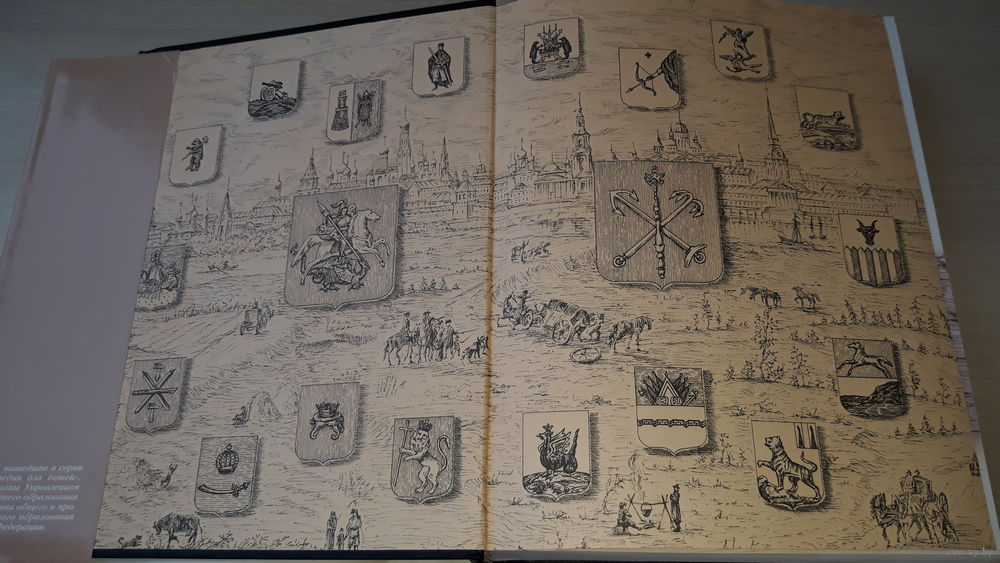 вышедшие в серии
едия для детей»,
ваны Управлением
него образования
ния общего и про-
ого образования
Федерации.
www.ay.by